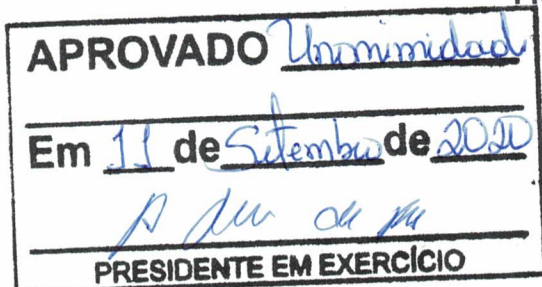 APROVADO Unanimidad
Em 11 de Setembro de 2020
PRESIDENTE EM EXERCÍCIO